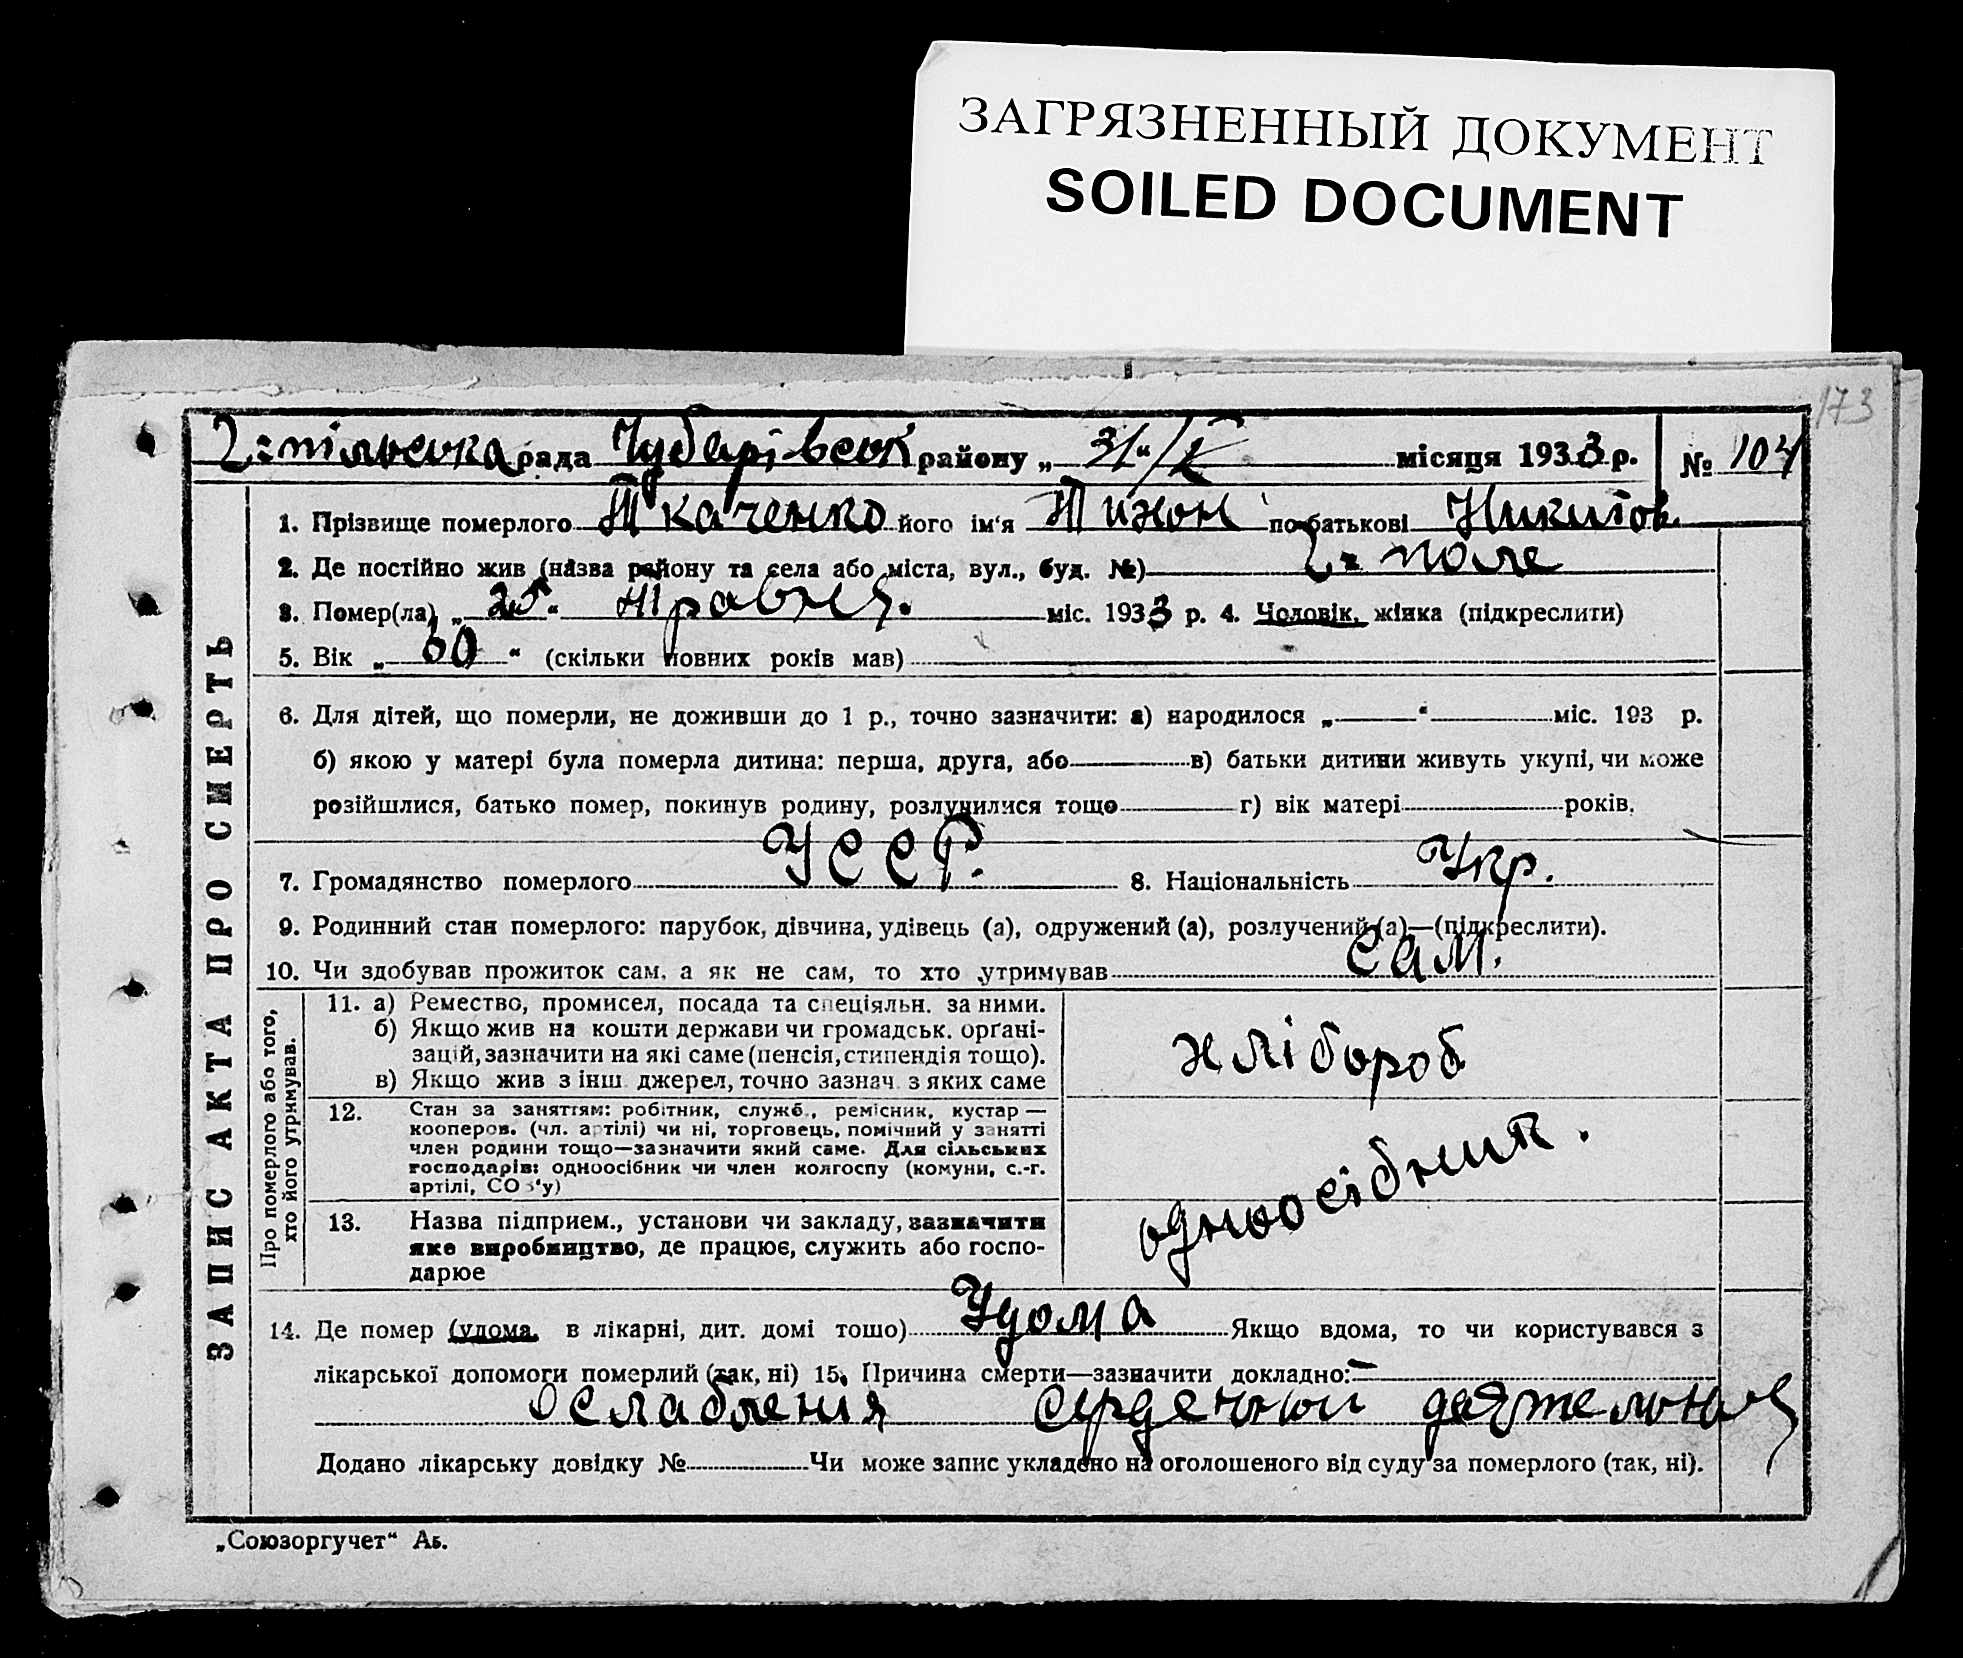 ЗАГРЯЗНЕННЫЙ ДОКУМЕНТ
SOILED DOCUMENT
173
Г=пільська рада Чубарівськ району „ 31 “ /V місяця 1933 р. № 104
ЗАПИС АКТА ПРО СМЕРТЬ
1. Прізвище померлого Ткаченко його ім‘я Тихон по батькові Никитов.
2. Де постійно жив (назва району та села або міста, вул., буд. №) Г=поле
3. Помер(ла) „ 25 “ Травня. міс. 1933 р. 4. Чоловік, жінка (підкреслити)
5. Вік „ 60 “ (скільки повних років мав)
6. Для дітей, що померли, не доживши до 1 р., точно зазначити: а) народилося „ “ міс. 193 р.
б) якою у матері була померла дитина: перша, друга, або в) батьки дитини живуть укупі, чи може
розійшлися, батько помер, покинув родину, розлучилися тощо г) вік матері років.
7. Громадянство померлого УССР. 8. Національність Укр.
9. Родинний стан померлого: парубок, дівчина, удівець (а), одружений (а), розлучений (а)—(підкреслити).
10. Чи здобував прожиток сам, а як не сам, то хто утримував сам.
Про померлого або того,
хто його утримував.
11. а) Ремество, промисел, посада та спеціяльн. за ними.
б) Якщо жив на кошти держави чи громадськ. орґані-
зацій, зазначити на які саме (пенсія, стипендія тощо).
в) Якщо жив з інш. джерел, точно зазнач. з яких саме
хлібороб
12. Стан за заняттям: робітник, служб., ремісник, кустар —
кооперов. (чл. артілі) чи ні, торговець, помічний у занятті
член родини тощо—зазначити який саме. Для сільських
господарів: одноосібник чи член колгоспу (комуни, с.-г.
артілі, СОЗ‘у)
одноосібник.
13. Назва підприєм., установи чи закладу, зазначити
яке виробництво, де працює, служить або госпо-
дарює
14. Де помер (удома, в лікарні, дит. домі тощо) Удома Якщо вдома, то чи користувався з
лікарської допомоги померлий (так, ні) 15. Причина смерти—зазначити докладно:
Ослаблення сердечной деятельнос
Додано лікарську довідку № Чи може запис укладено на оголошеного від суду за померлого (так, ні).
„Союзоргучет“ Аб.